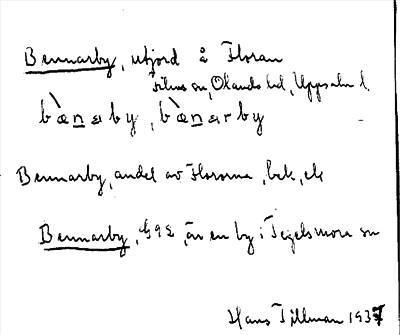 Bennarby, utjord å Floran
Films sn, Olands hd, Uppsala l.
bæ̀nɑby, bæ̀nɑrby
Bennarby, andel av Flororna, bek, ek
Bennarby, G92, är en by i Tegelsmora sn
Hans Tillman 1937